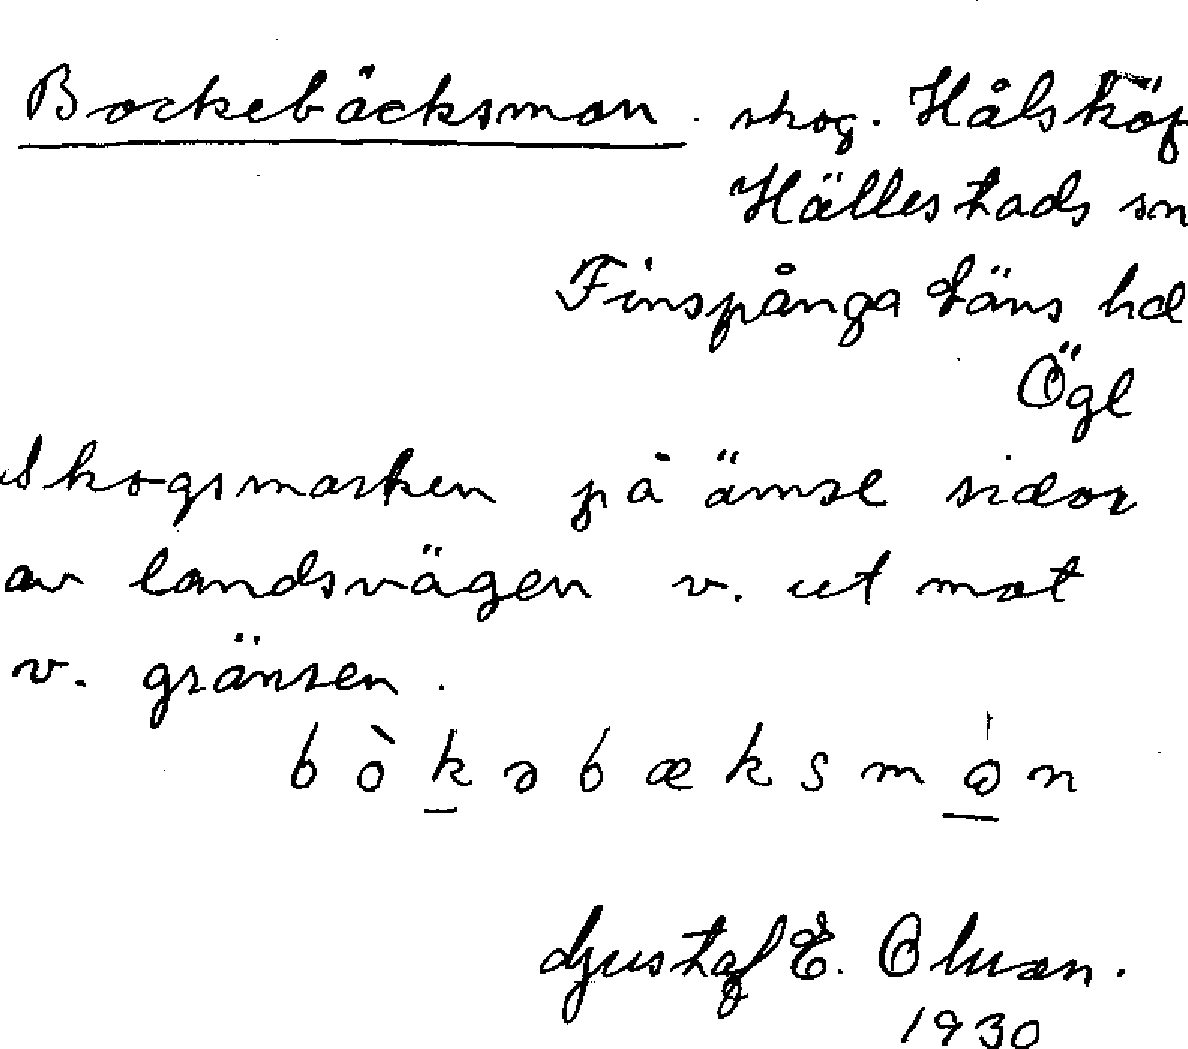 Bockebäcksmon. skog. Hålsköp
Hällestads sn
Finspånga läns hd
Ögl
Skogsmarken på ömse sidor
av landsvägen v. ut mot
v. gränsen.
bòkəbæksmɷn
Gustaf E. Olsson.
1930